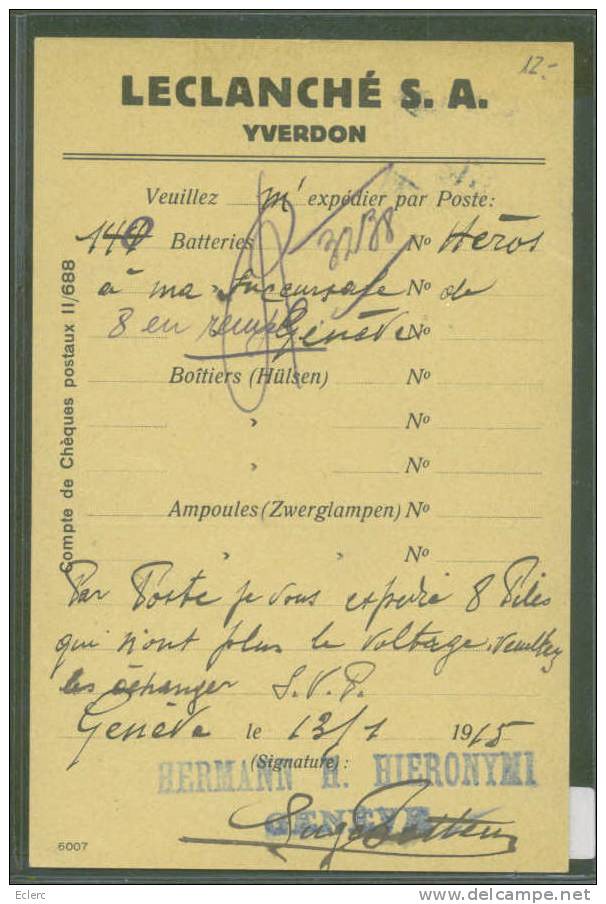 12.-
LECLANCHÉ S. A.
YVERDON
Veuillez m' expédier par Poste:
Batteries 32138 Nº Héros
à ma Succursale Nº de
8 en Genève Nº
Boîtiers (Hülsen) Nº
» Nº
» Nº
Ampoules (Zwerglampen) Nº
» » Nº
Par Poste je vous expedie 8 Piles
qui n'ont plus le voltage, veuillez
les échanger S.V.P.
Genève le 13/1 1915
(Signature):
HERMANN H. HIERONYMI
GENÈVE
6007
Compte de Chèques postaux II/688
Eclerc
www.delcampe.net